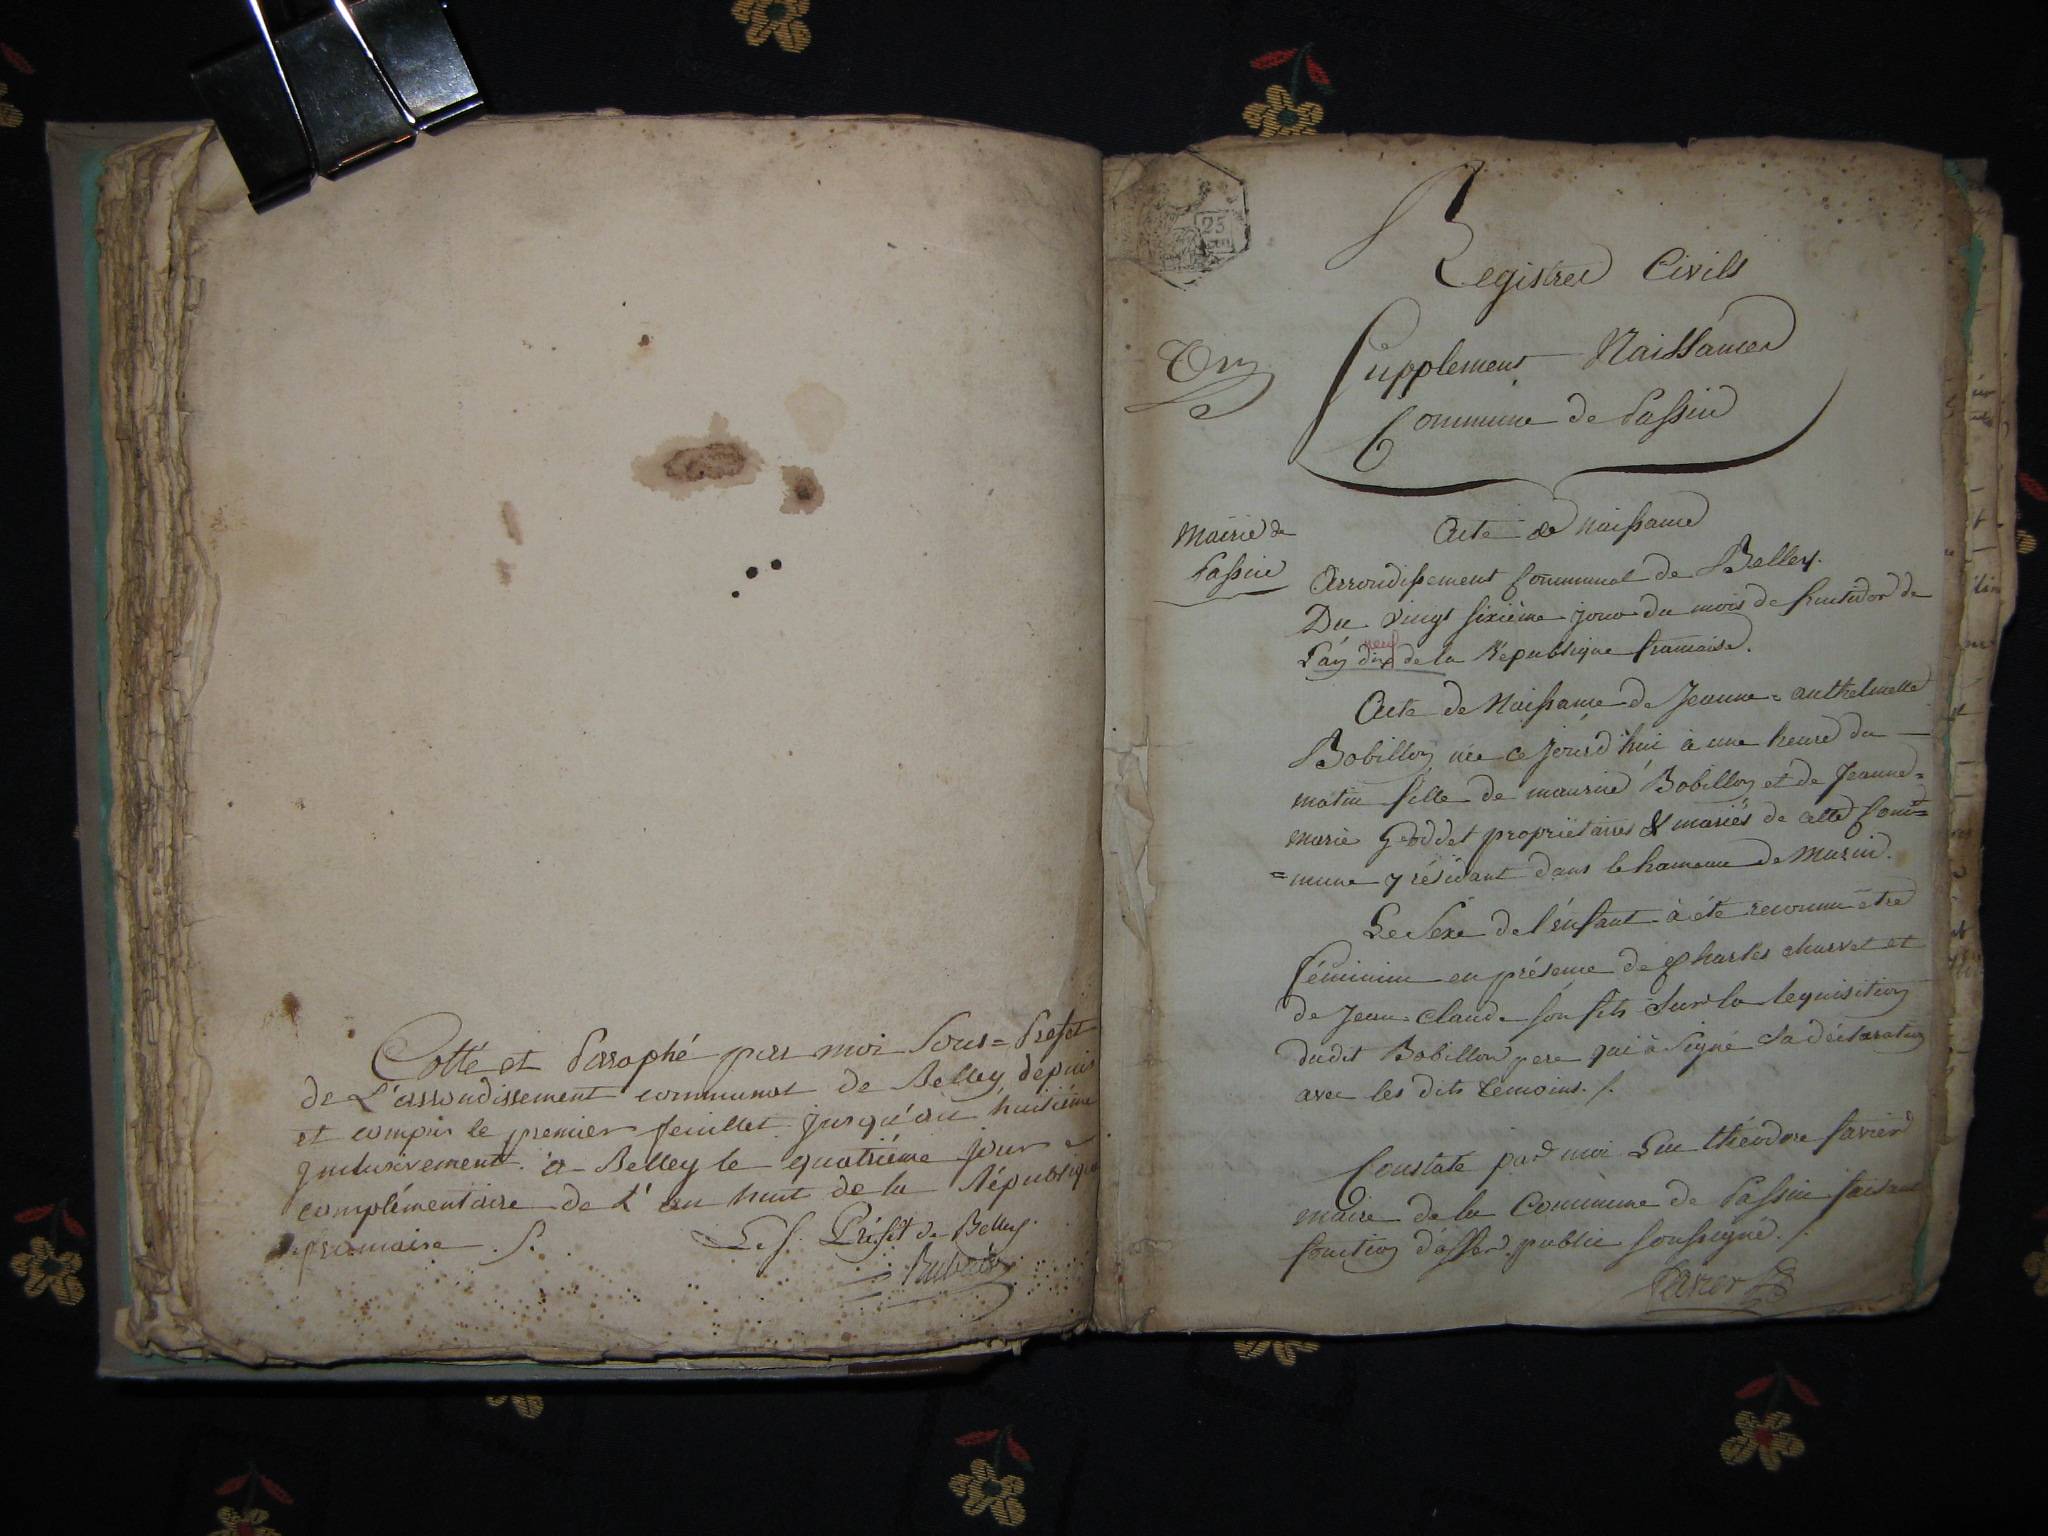 Cotté et Paraphé par moi Sous=Prefet
de L'arrondissement communal de Belley, depuis
et compris le premier feuillet jusqu'au huitiéme
Inclusivement. a Belley le quatriéme jour
complémentaire de l'an huit de la République
française ./.
Le S. Préfet de Belley.
25
Registres Civils
Supplement Naissances
Commune de Passin
Mairie de
Passin
Acte de naissance
Arrondissement Communal de Belley.
Du vingt sixième jour du mois de fructidor de
neuf
L'an dix de la République francaise.
Acte de Naissance de Jeanne=anthelmette
Bobillon née ce jourd'hui à une heure du
matin fille de maurice Bobillon et de Jeanne=
marie Goddet propriétaires & mariés de cette Com=
=mune y résidant dans le hameau de Musin.
Le Sexe de l'énfant à été reconnu être
féminin en présence de Charles charvet et
de Jean-Claude son fils Sur la requisition
dudit Bobillon pere qui à Signé Sa déclaration
avec les dits témoins. /.
Constaté par moi Luc théodore favier
maire de la Commune de Passin faisant
fonction d'offer. public soussigné. /.
favier